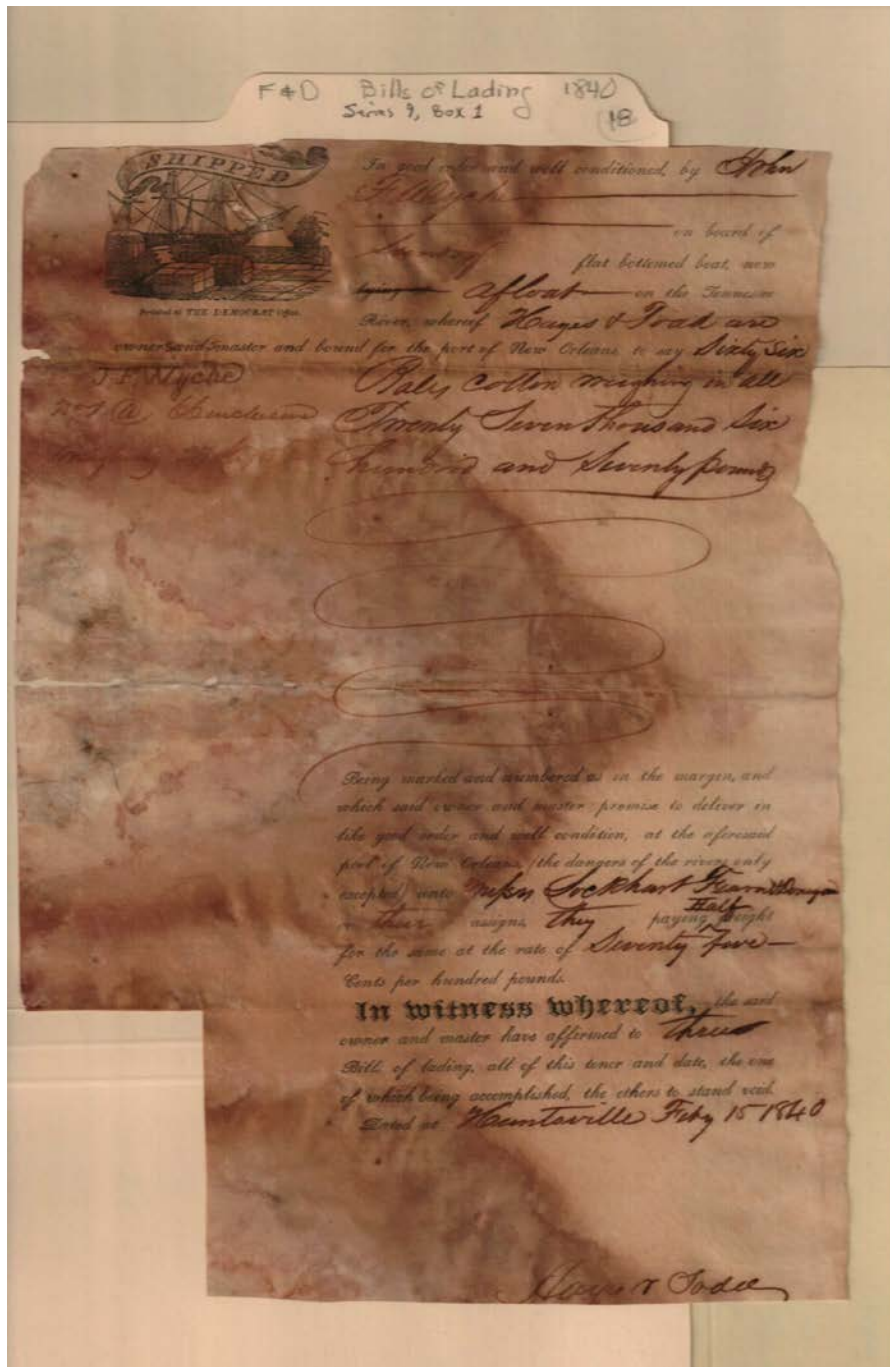 F & D Bills of Lading 1840
Series 9, Box 1
18
SHIPPED
In good order and well conditioned, by John
on board of
flat bottomed boat, now
lying afloat on the Tennessee
Printed at THE DEMOCRAT Office.
River, whereof Hayes &
owners and master and bound for the port of New Orleans, to say Sixty Six
J F Wyche
Bales Cotton weighing in all
Twenty Seven thousand Six
hundred and Seventy pounds
Being marked and numbered as in the margin, and
which said owner and master promise to deliver in
like good order and well condition, at the aforesaid
port of New Orleans, (the dangers of the rivers only
excepted) unto Messrs Lockhart Fearn
Half
or their assigns, they paying freight
for the same at the rate of Seventy five
Cents per hundred pounds.
In witness whereof, the said
owner and master have affirmed to three
Bills of lading, all of this tenor and date, the one
of which being accomplished, the others to stand void.
Dated at Huntsville Feby 15 1840